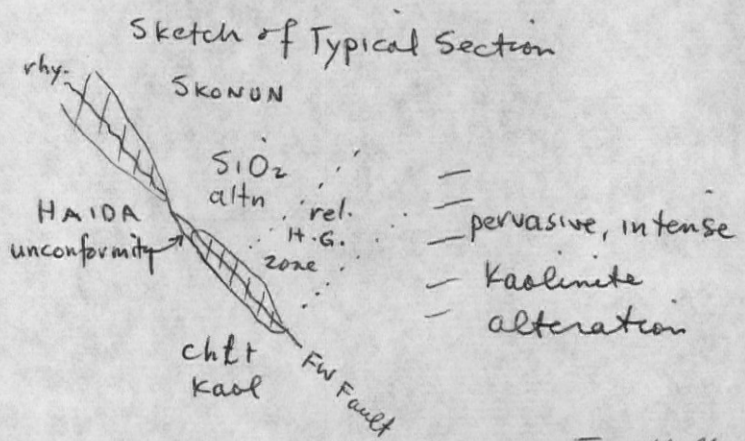 Sketch of Typical Section
rhy.
SKONUN
SiO2
altn
HAIDA
unconformity
rel.
H.G.
zone
pervasive, intense
Kaolinite
alteration
chlt
Kaol
FW Fault